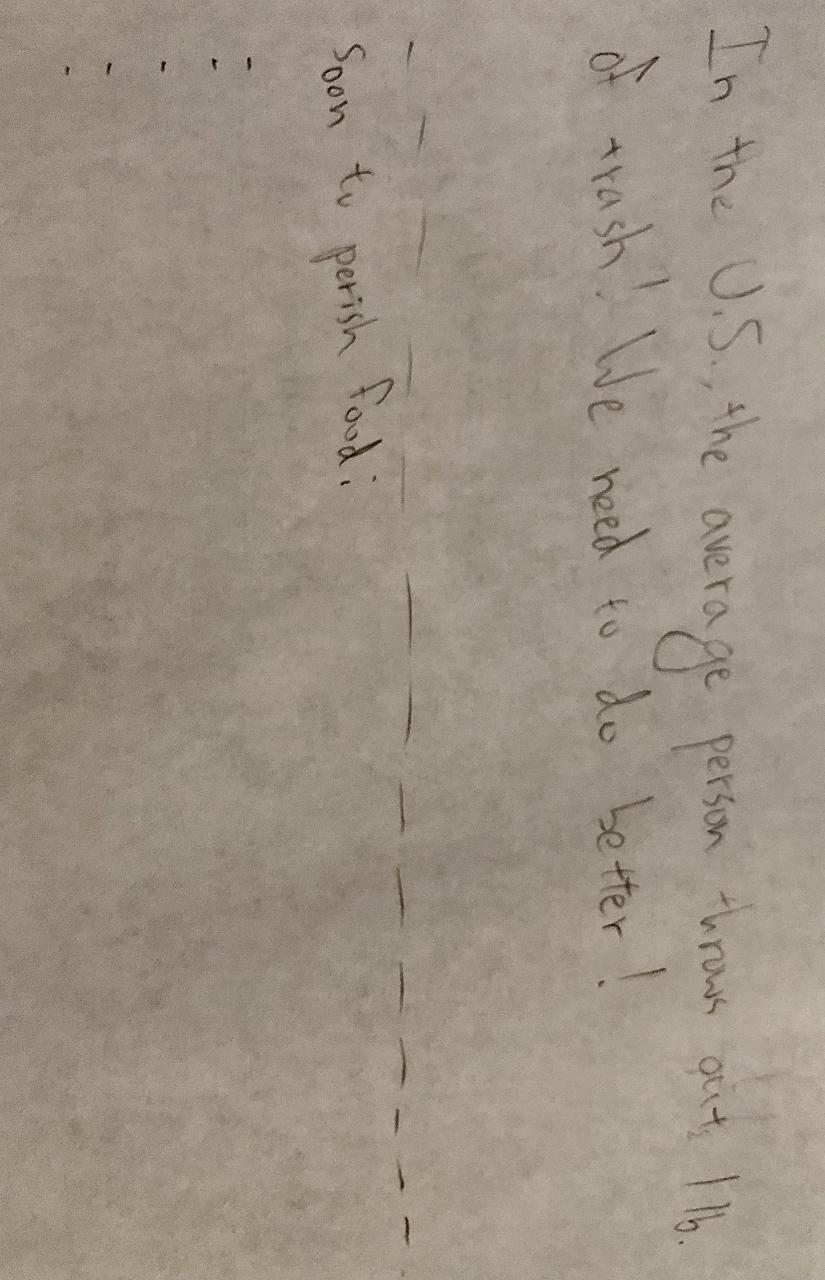 In the U.S., the average person throws out 1 lb.
of trash! We need to do better!
Soon to perish food: